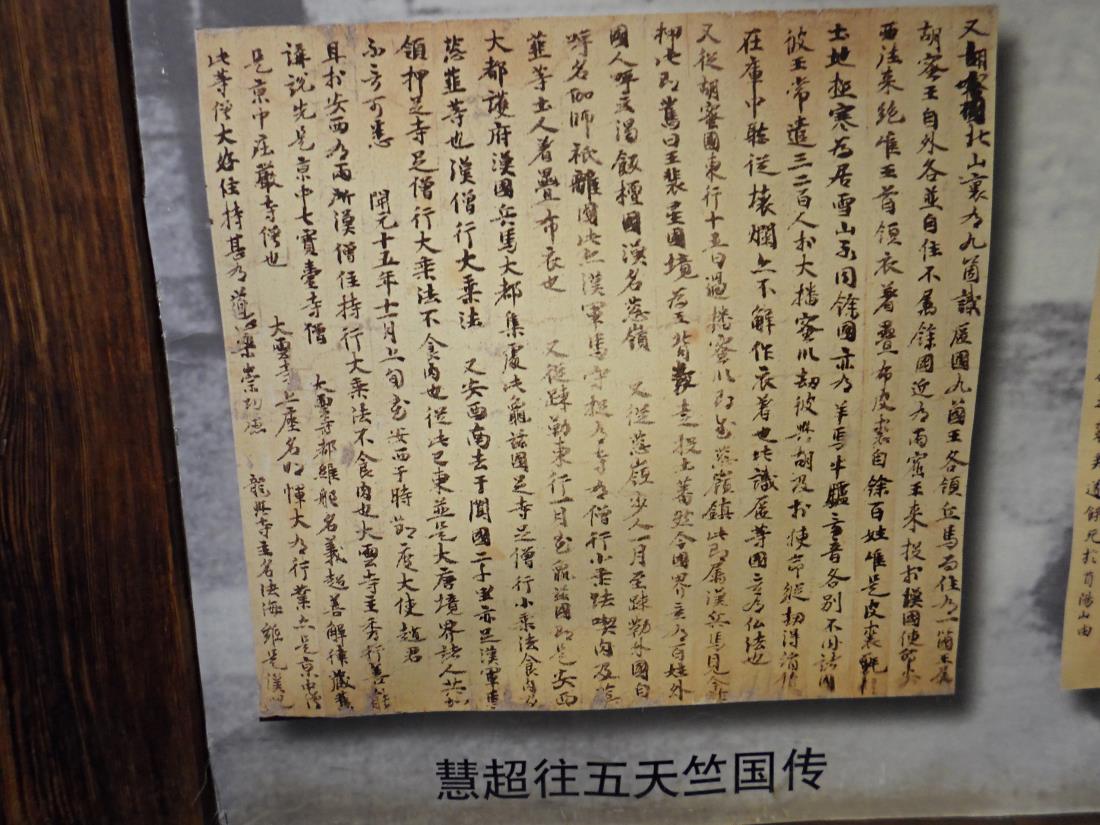 又胡蜜國北山裏有九箇識匿國九箇王各領兵馬而住有一箇王屬
胡蜜王自外各並自住不屬餘國近有兩窟王來投於漢國使命安
西往來絕唯王首領衣着疊布皮裘自餘百姓唯是皮裘氈
土地極寒為居雪山不同餘國亦有羊馬牛驢言音各別不同諸國
彼王常遣三二百人於大播蜜川劫彼興胡及於使命縱劫得絹積
在庫中聽從壞爛亦不解作衣着也此識匿等國无有仏法也
又從胡蜜國東行十五日過播蜜川即至葱嶺鎮此即屬漢兵馬見今
押此即舊日王裴星國境為王背叛走投土蕃然今國界无有百姓外
國人呼云渴飯檀國漢名葱嶺 又從葱嶺步入一月至疎勒外國自
呼名伽師祇離國此亦漢軍馬守捉有寺有僧行小乘法喫肉及葱
韮等土人着疊布衣也 又從疎勒東行一月至龜茲國即是安西
大都護府漢國兵馬大都集處此龜茲國足寺足僧行小乘法食肉及
葱韮等也漢僧行大乘法 又安西南去于闐國二千里亦足漢軍馬
領押足寺足僧行大乘法不食肉也從此已東並是大唐境界諸人共知
不言可悉 開元十五年十一月上旬至安西于時節度大使趙君
且於安西有兩所漢僧住持行大乘法不食肉也大雲寺主秀行善能
講說先是京中七寶臺寺僧 大雲寺都維那名義超善解律藏舊
是京中莊嚴寺僧也 大雲寺上座名明惲大有行業亦是京中僧
此等僧大好住持甚有道心樂崇功德 龍興寺主名法海雖是漢兒
慧超往五天竺国传